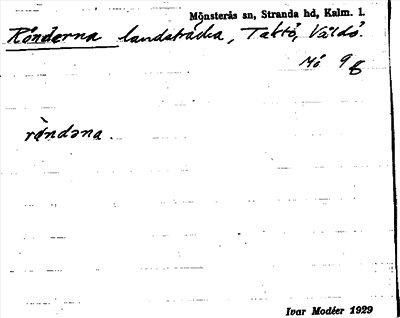 Mönsterås sn, Stranda hd, Kalm. l.
Rönderna landsträcka, Taktö, Vållö.
Mö 9g
röndəna.
Ivar Modéer 1929